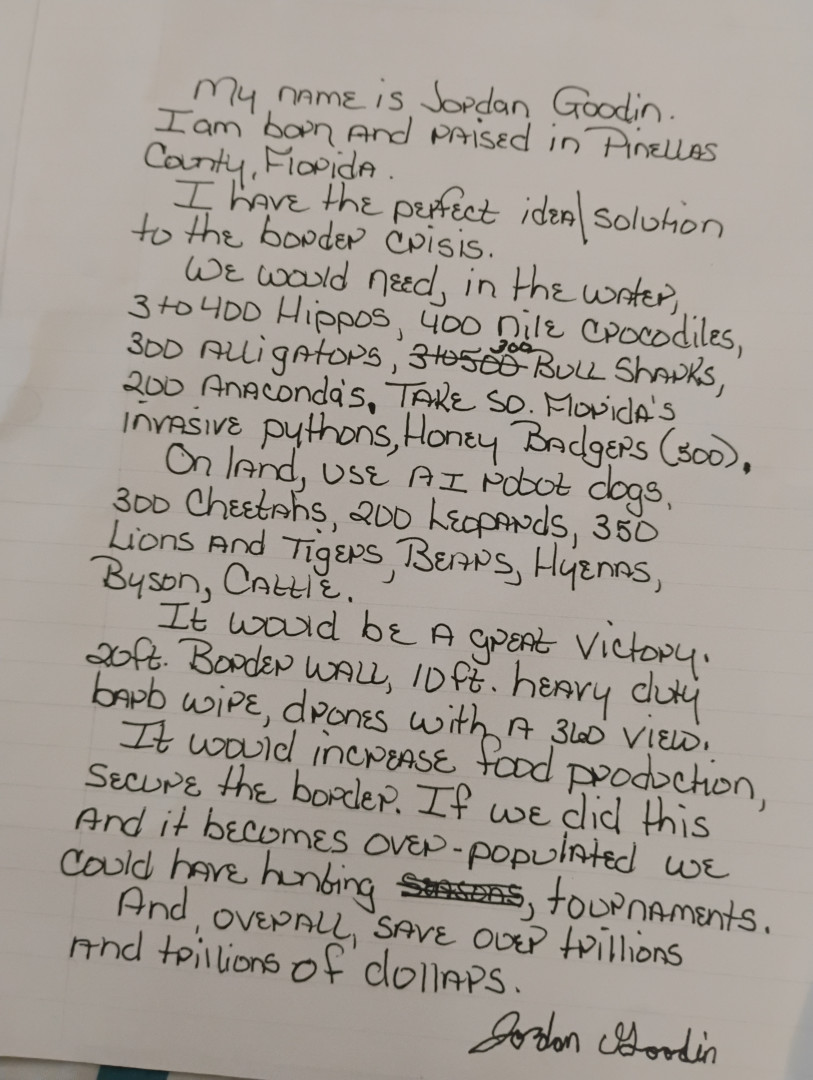 My name is Jordan Goodin.
I am born and raised in Pinellas
County, Florida.
I have the perfect idea/solution
to the border crisis.
We would need, in the water,
3 to 400 Hippos, 400 Nile Crocodiles,
300 Alligators, 3 to 500 300 Bull Sharks,
200 Anaconda's. Take So. Florida's
invasive pythons, Honey Badgers (300).
On land, use AI robot dogs,
300 Cheetahs, 200 Leopards, 350
Lions and Tigers, Bears, Hyenas,
Byson, Cattle.
It would be a great victory.
20ft. Border wall, 10 ft. heavy duty
barb wire, drones with a 360 view.
It would increase food production,
secure the border. If we did this
And it becomes over-populated we
could have hunting seasons, tournaments.
And, overall, save over trillions
and trillions of dollars.
Jordan Goodin